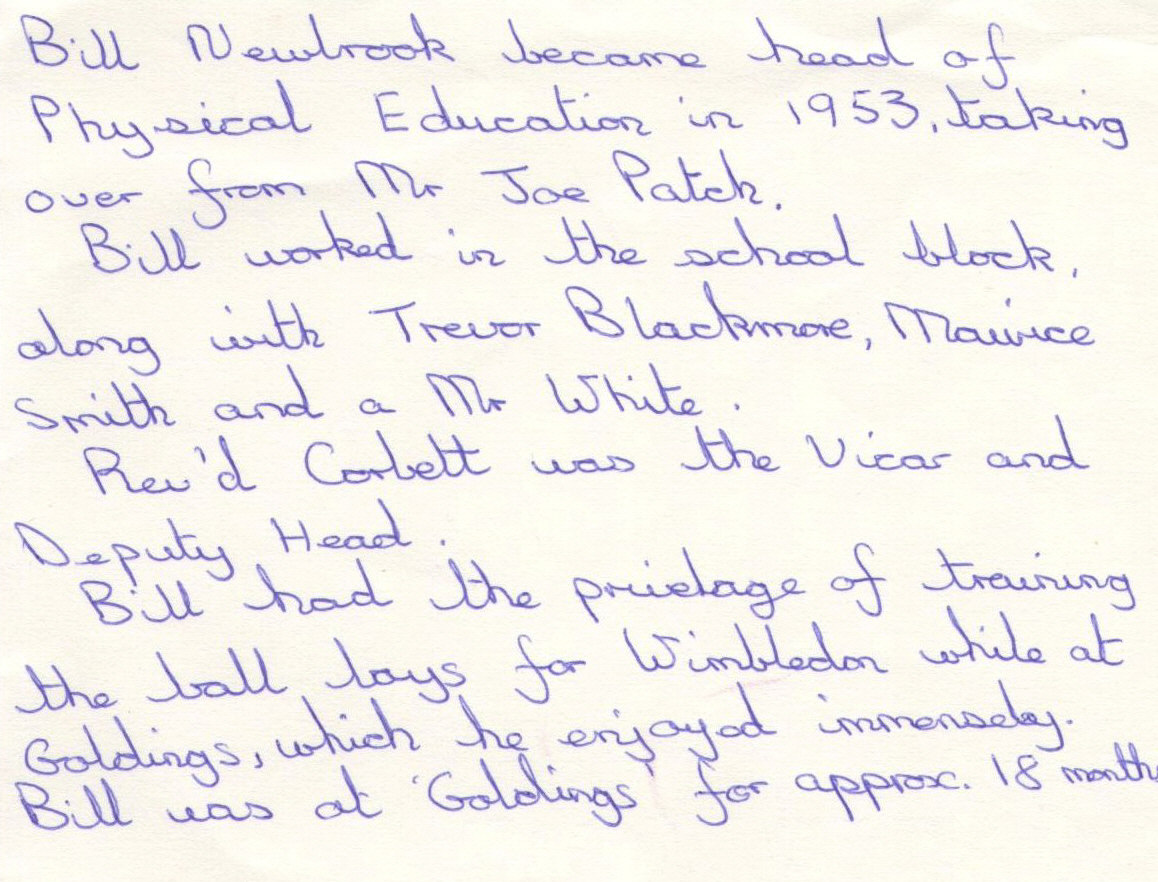 Bill Newbrook became head of
Physical Education in 1953, taking
over from Mr Joe Patch.
Bill worked in the school block,
along with Trevor Blackmore, Maurice
Smith and a Mr White.
Rev'd Corbett was the Vicar and
Deputy Head.
Bill had the prielage of training
the ball boys for Wimbledon while at
Goldings, which he enjoyed immensely.
Bill was at 'Goldings' for approx. 18 months